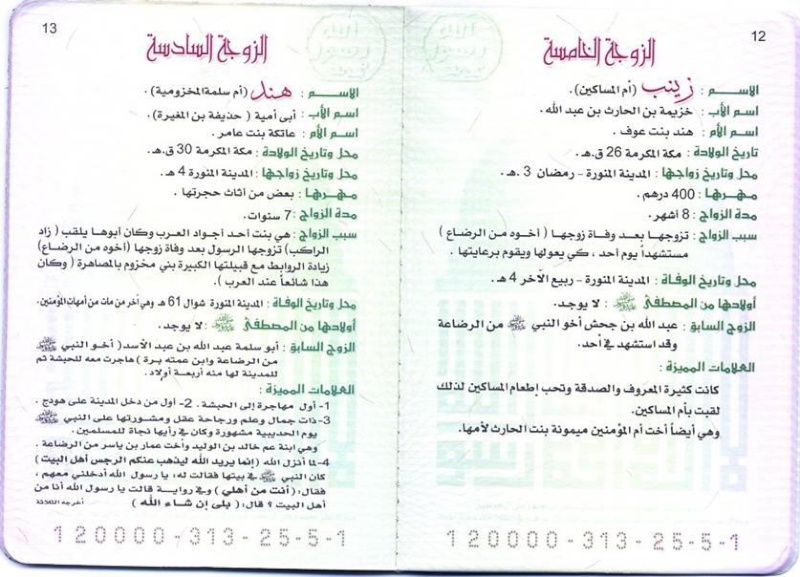 12
الزوجة الخامسة
الاسـم : زينب (أم المساكين).
اسم الأب : خزيمة بن الحارث بن عبد الله.
اسم الأم : هند بنت عوف.
تاريخ الولادة : مكة المكرمة 26 ق.هـ.
محل وتاريخ زواجها : المدينة المنورة - رمضان 3 .هـ.
مهرها : 400 درهم.
مدة الزواج : 8 أشهر.
سبب الزواج : تزوجها بعد وفاة زوجها ( أخوه من الرضاع )
مستشهداً يوم أحد ، كي يعولها ويقوم برعايتها .
محل وتاريخ الوفاة : المدينة المنورة - ربيع الآخر 4 هـ.
أولادها من المصطفى ﷺ : لا يوجد.
الزوج السابق : عبد الله بن جحش أخو النبي ﷺ من الرضاعة
وقد استشهد في أحد.
العلامات المميزة :
كانت كثيرة المعروف والصدقة وتحب إطعام المساكين لذلك
لقبت بأم المساكين.
وهي أيضاً أخت أم المؤمنين ميمونة بنت الحارث لأمها.
120000-313-25-5-1
13
الزوجة السادسة
الاسـم : هند (أم سلمة المخزومية) .
اسم الأب : أبى أمية ( حذيفة بن المغيرة).
اسم الأم : عاتكة بنت عامر .
محل وتاريخ الولادة : مكة المكرمة 30 ق.هـ.
محل وتاريخ زواجها : المدينة المنورة 4 هـ.
مهرها : بعض من أثاث حجرتها .
مدة الزواج : 7 سنوات.
سبب الزواج : هي بنت أحد أجواد العرب وكان أبوها يلقب ( زاد
الراكب) تزوجها الرسول بعد وفاة زوجها (أخوه من الرضاع)
زيادة الروابط مع قبيلتها الكبيرة بني مخزوم بالمصاهرة ( وكان
هذا شائعاً عند العرب ).
محل وتاريخ الوفاة : المدينة المنورة شوال 61 هـ وهي آخر من مات من أمهات المؤمنين.
أولادها من المصطفى ﷺ : لا يوجد.
الزوج السابق : أبو سلمة عبد الله بن عبد الأسد( أخو النبي ﷺ
من الرضاعة وابن عمته برة ) هاجرت معه للحبشة ثم
للمدينة لها منه أربعة أولاد.
العلامات المميزة :
1- أول مهاجرة إلى الحبشة . 2- أول من دخل المدينة على هودج .
3-ذات جمال وعلم ورجاحة عقل ومشورتها على النبي ﷺ
يوم الحديبية مشهورة وكان في رأيها نجاة للمسلمين .
وهي ابنة عم خالد بن الوليد وأخت عمار بن ياسر من الرضاعة .
4-لما أنزل الله (إنما يريد الله ليذهب عنكم الرجس أهل البيت )
كان النبي ﷺ في بيتها فقالت له، يا رسول الله أدخلني معهم ،
فقال: ( أنت من أهلي ) وفي رواية قالت يا رسول الله أنا من
أهل البيت ؟ قال: ( بلى إن شاء الله )
120000-313-25-5-1